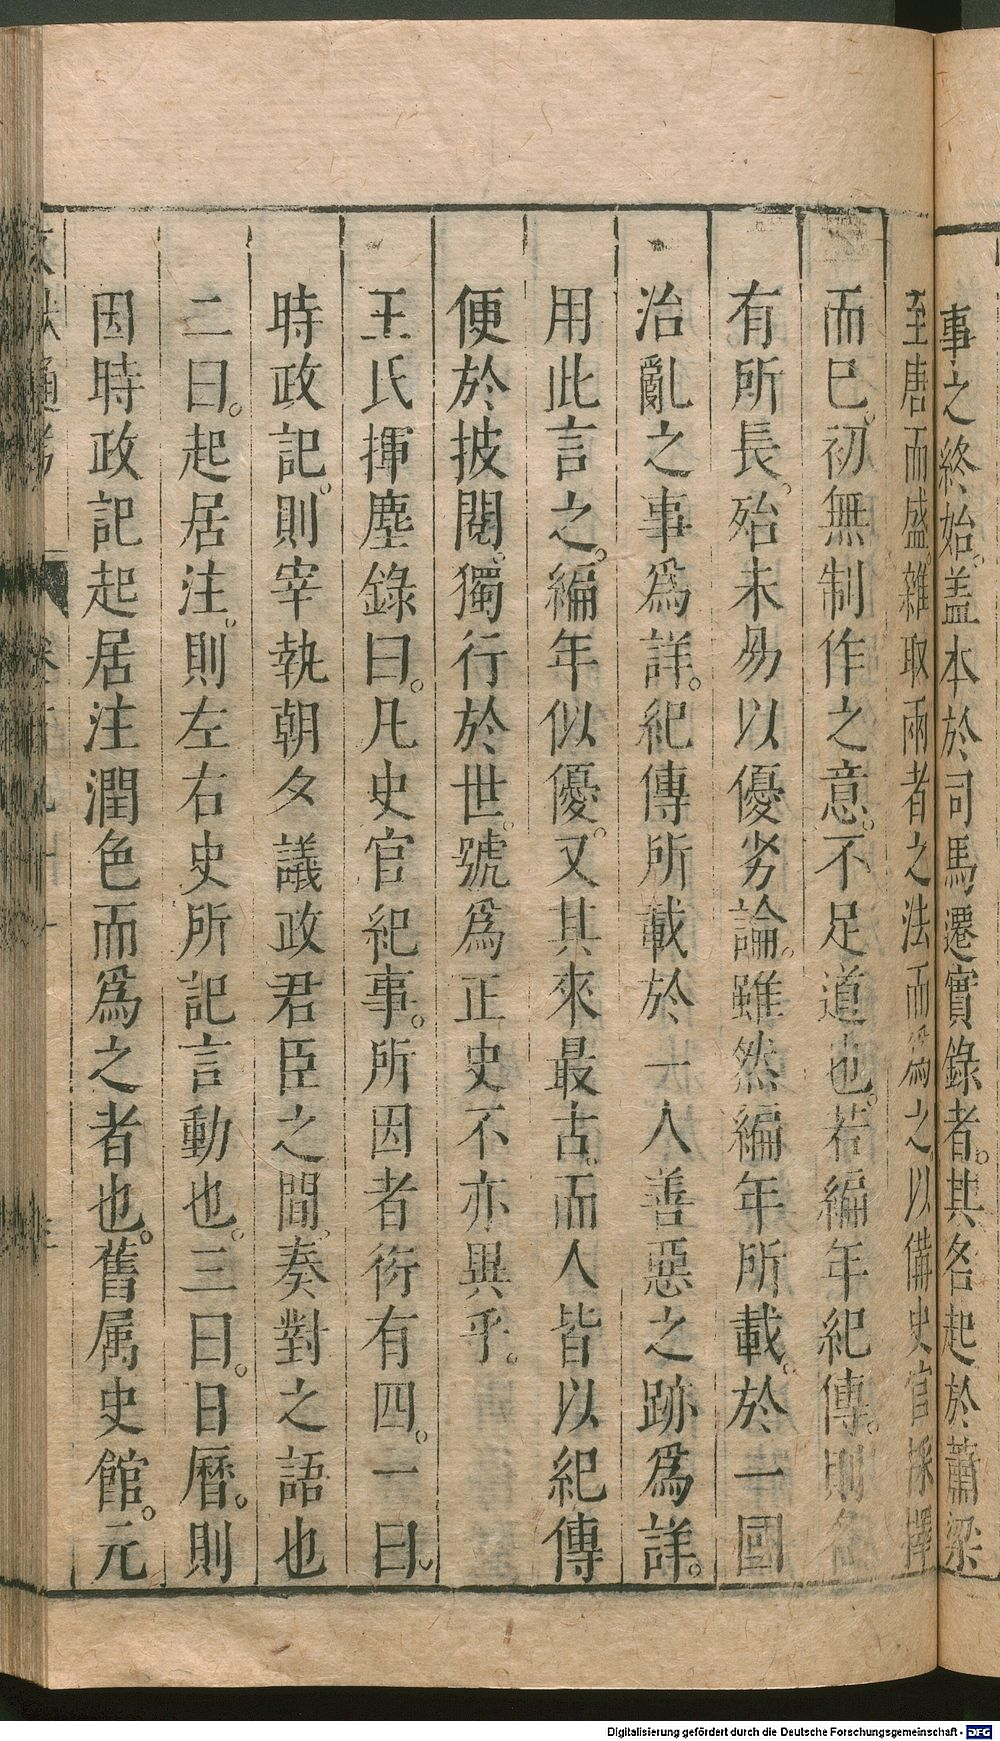 事之終始。盖本於司馬遷實錄者。其名起於蕭梁
至唐而盛。雜取兩者之法而爲之以備史官採擇
而已。初無制作之意。不足道也。若編年紀傳。則各
有所長。殆未易以優劣論。雖然編年所載。於一國
治亂之事爲詳。紀傳所載於一人善惡之跡爲詳。
用此言之。編年似優。又其來最古。而人皆以紀傳
便於披閱。獨行於世。號爲正史不亦異乎。
王氏揮塵錄曰。凡史官紀事。所因者衍有四。一曰。
時政記。則宰執朝夕議政君臣之間。奏對之語也
二曰。起居注。則左右史所記言動也。三曰。日曆。則
因時政記起居注潤色而爲之者也。舊属史館。元
通考
Digitalisierung gefördert durch die Deutsche Forschungsgemeinschaft - DFG